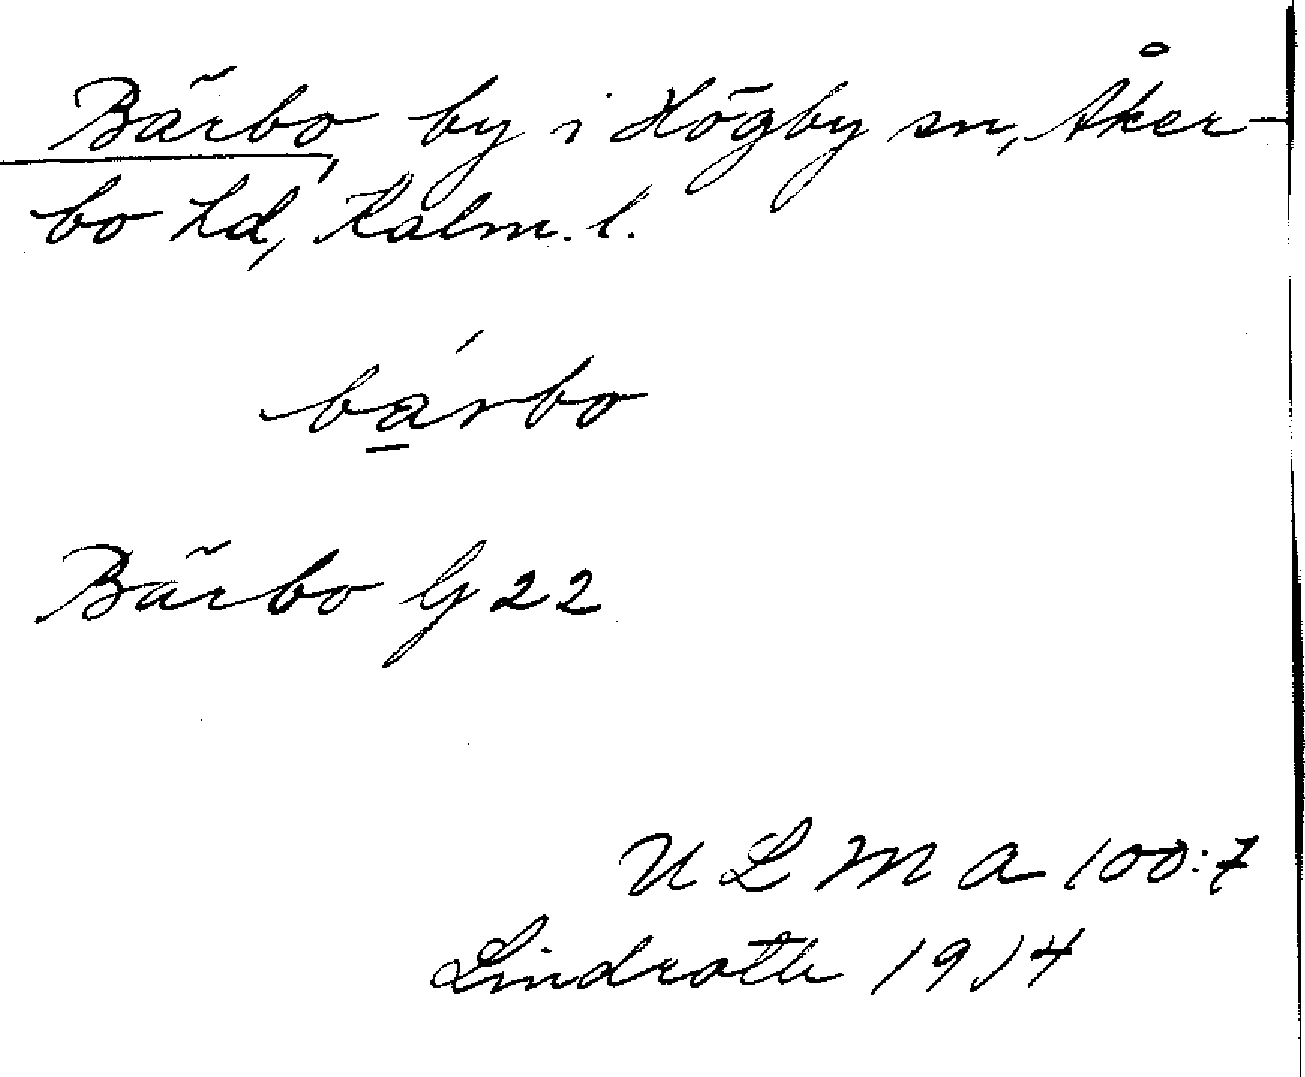 Bärbo, by i Högby sn, Åker-
bo hd, Kalm. l.
bárbo
Bärbo G 22
U L M A 100:7
Lindroth 1914